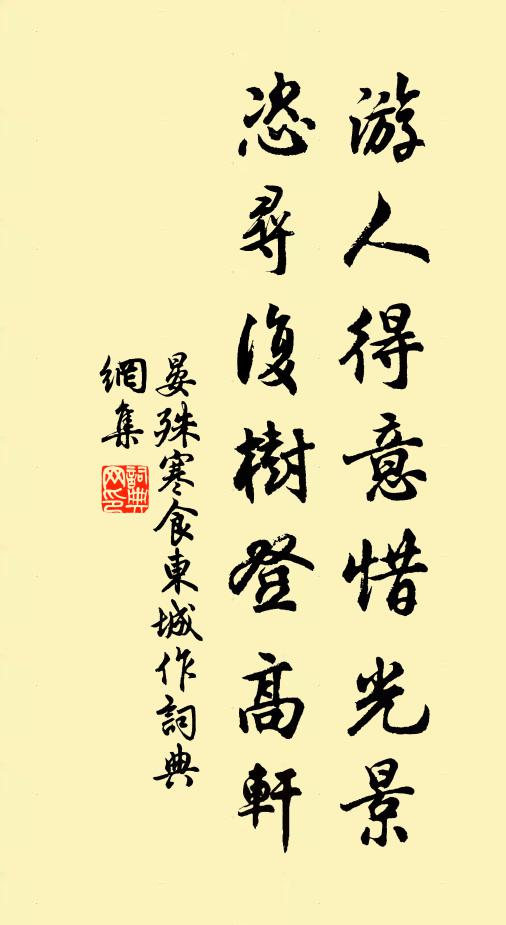 游人得意惜光景
恣尋復樹登高軒
晏殊寒食東城作詞典
網集
詞典
网印